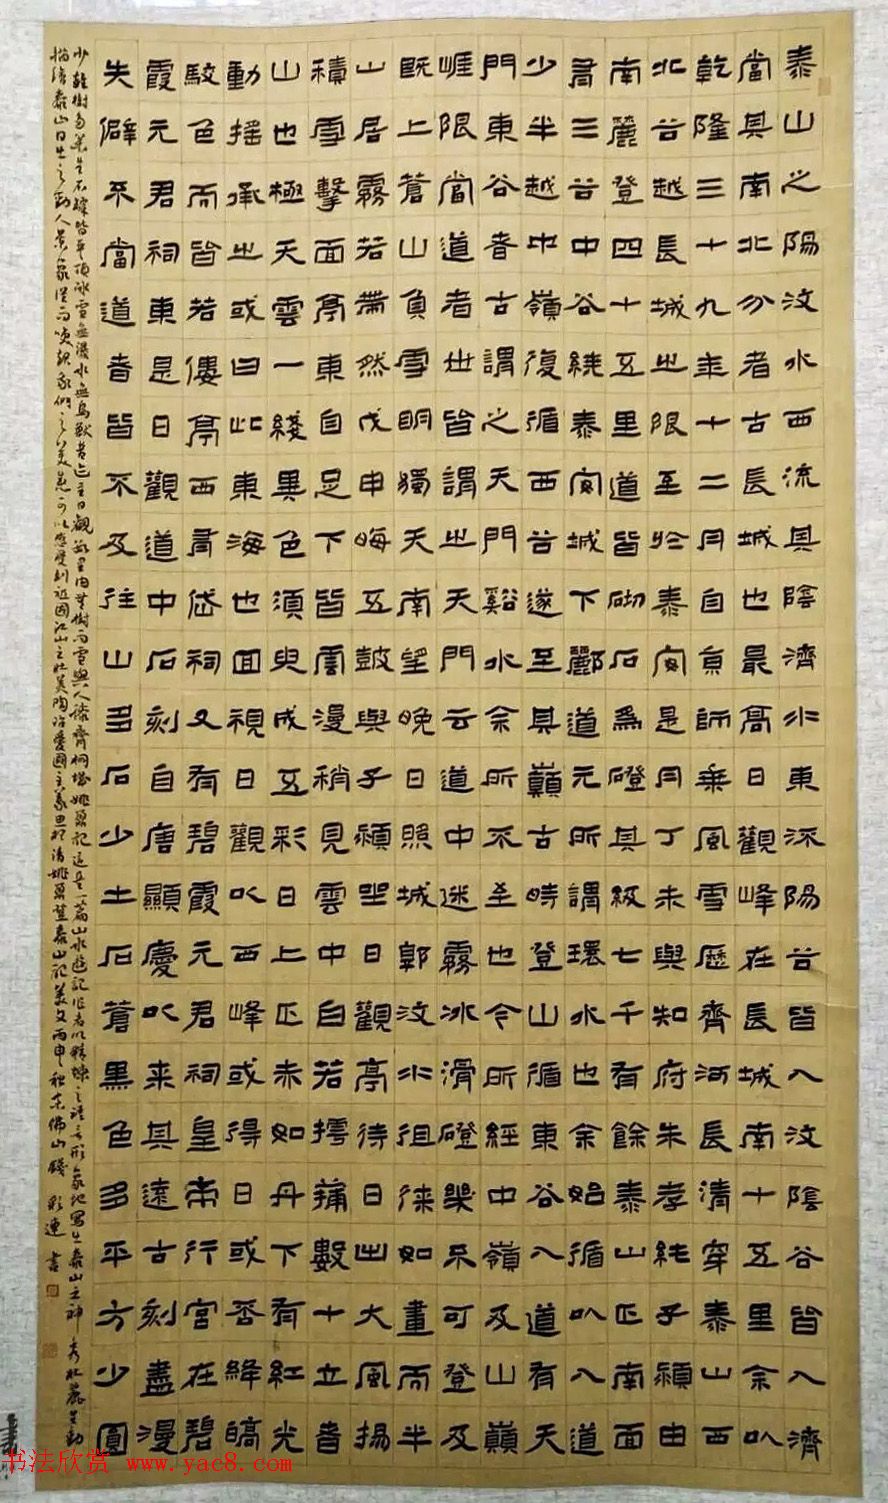 泰山之陽汶水西流其陰濟水東流陽谷皆入汶陰谷皆入濟
當其南北分者古長城也最高日觀峰在長城南十五里余以
乾隆三十九年十二月自京師乘風雪歷齊河長清穿泰山西
北谷越長城之限至於泰安是月丁未與知府朱孝純子潁由
南麓登四十五里道皆砌石為磴其級七千有餘泰山正南面
有三谷中谷繞泰安城下酈道元所謂環水也余始循以入道
少半越中嶺復循西谷遂至其巔古時登山循東谷入道有天
門東谷者古謂之天門谿水余所不至也今所經中嶺及山巔
崖限當道者世皆謂之天門云道中迷霧冰滑磴幾不可登及
既上蒼山負雪明燭天南望晚日照城郭汶水徂徠如畫而半
山居霧若帶然戊申晦五鼓與子潁坐日觀亭待日出大風揚
積雪擊面亭東自足下皆雲漫稍見雲中白若摴蒱數十立者
山也極天雲一綫異色須臾成五彩日上正赤如丹下有紅光
動搖承之或曰此東海也回視日觀以西峰或得日或否絳皜
駁色而皆若僂亭西有岱祠又有碧霞元君祠皇帝行宮在碧
霞元君祠東是日觀道中石刻自唐顯慶以來其遠古刻盡漫
失僻不當道者皆不及往山多石少土石蒼黑色多平方少圓
少雜樹多松生石罅皆平頂冰雪無瀑水無鳥獸音迹至日觀數里內無樹而雪與人膝齊桐城姚鼐記這是一篇山水遊記作者以精煉之語言形象地寫出泰山之神秀壯麗生動
描繪泰山日出之動人景象從而喚起我們之美感可以感受到祖國江山之壯美陶冶愛國主義思想清姚鼐登泰山記美文丙申秋於佛山錢彩連書
书法欣赏 www.yac8.com